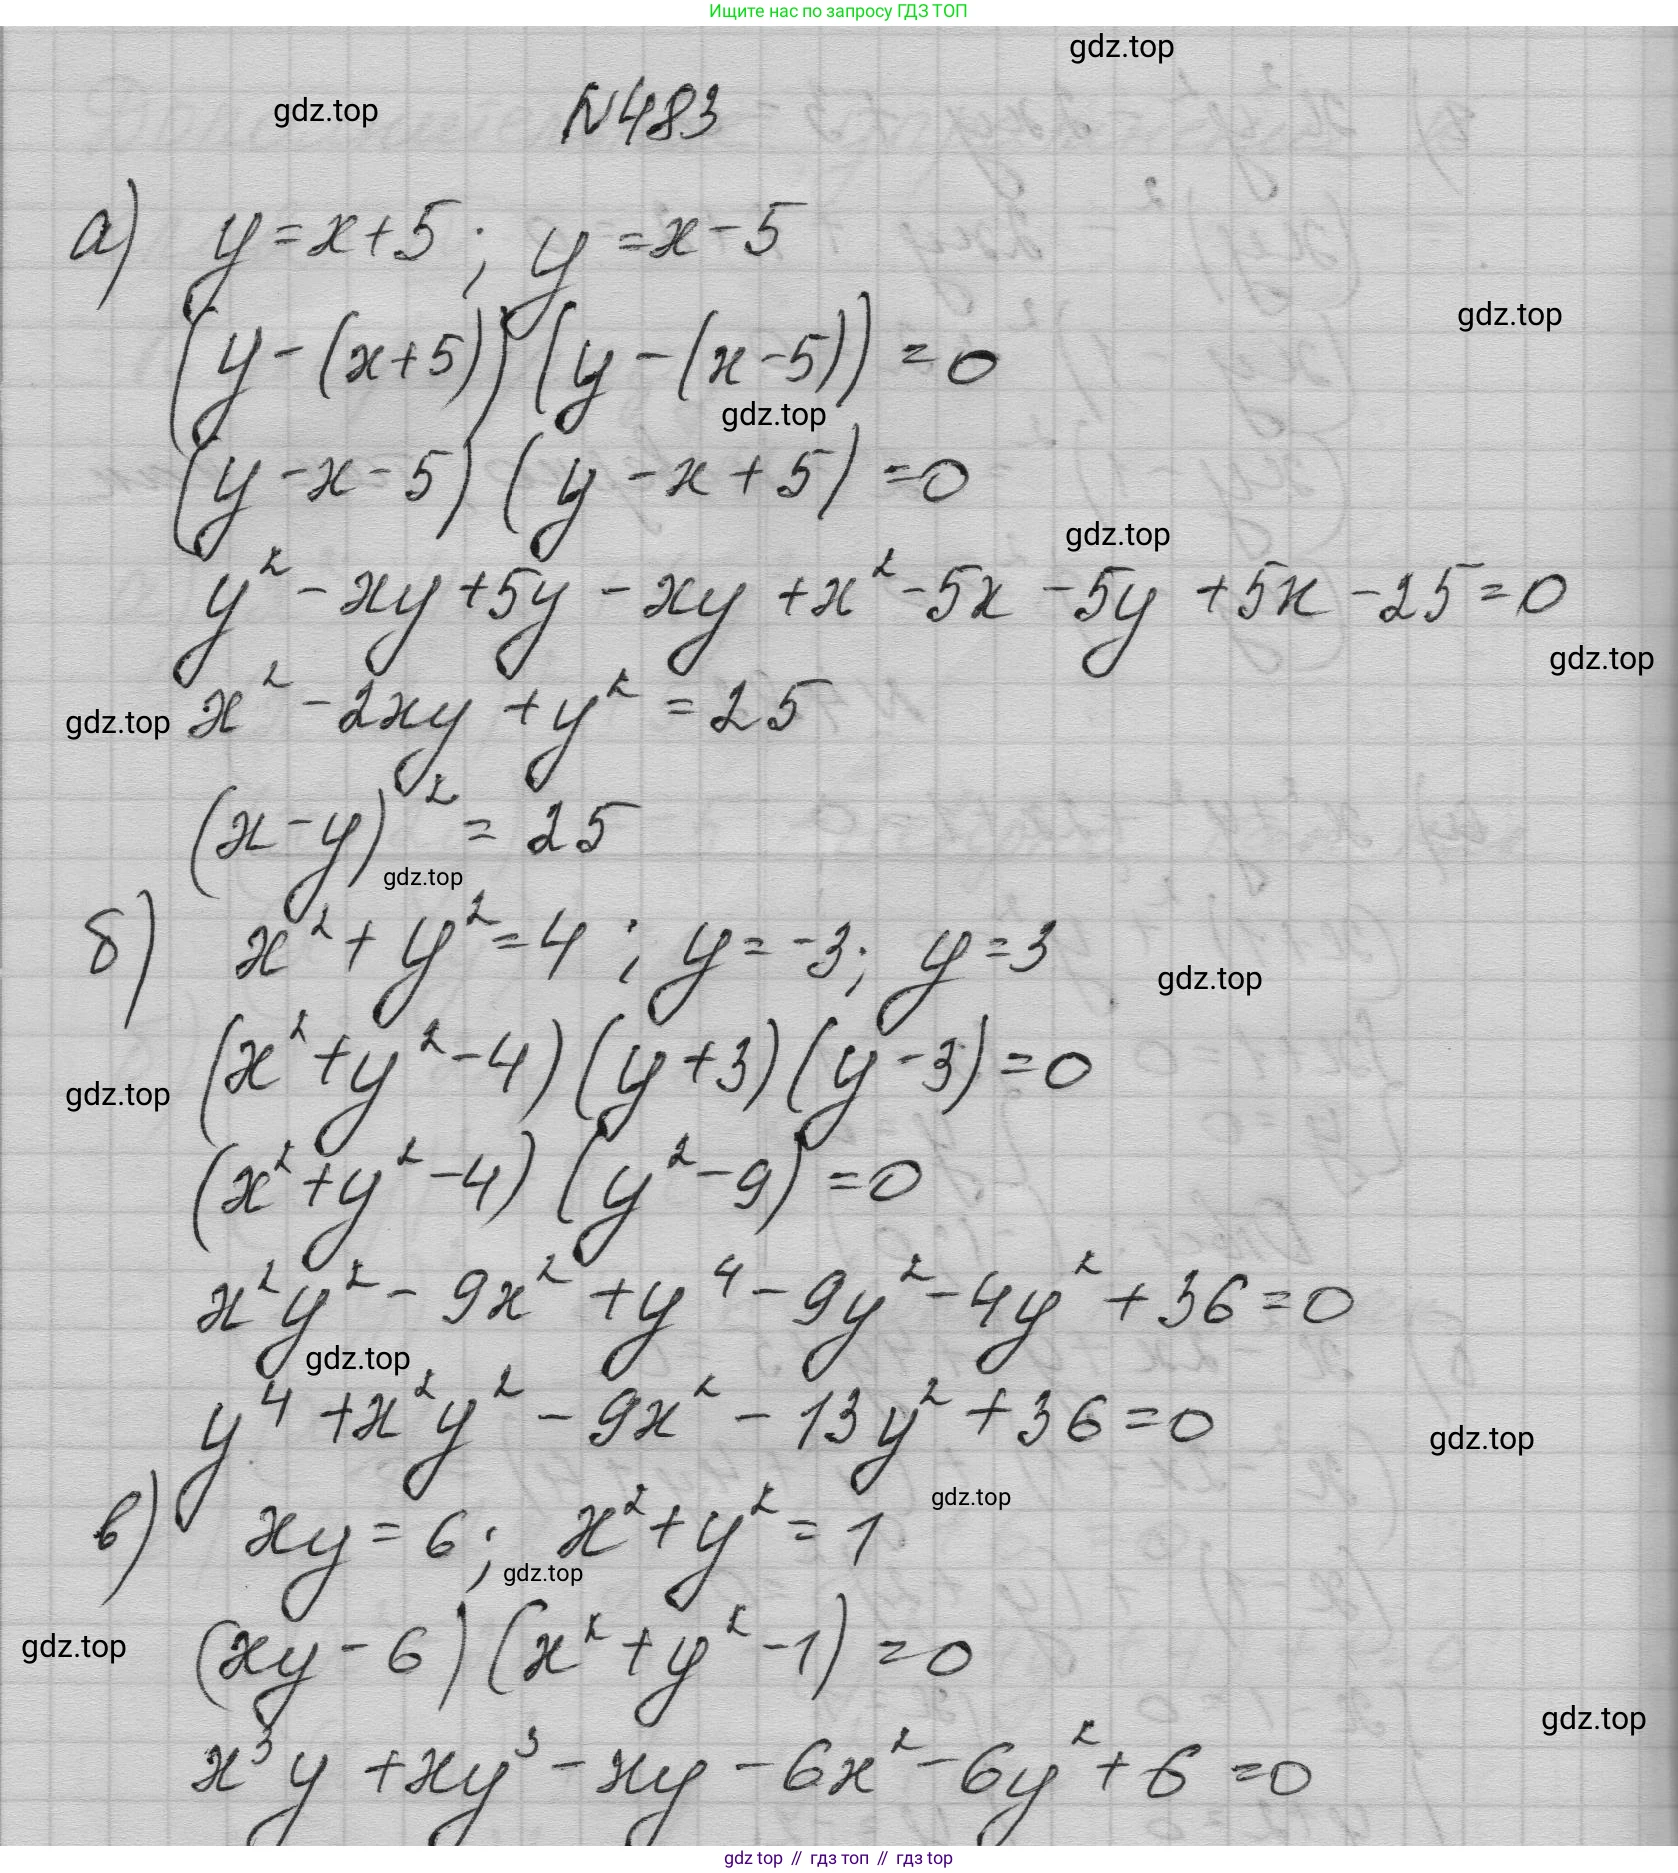 Ищите нас по запросу ГДЗ ТОП
gdz.top
gdz.top
N483
а) y = x + 5 ; y = x - 5
gdz.top
(y - (x + 5)) (y - (x - 5)) = 0
gdz.top
(y - x - 5) (y - x + 5) = 0
gdz.top
y² - xy + 5y - xy + x² - 5x - 5y + 5x - 25 = 0
gdz.top
gdz.top
x² - 2xy + y² = 25
(x - y)² = 25
gdz.top
б) x² + y² = 4 ; y = -3 ; y = 3
gdz.top
(x² + y² - 4) (y + 3) (y - 3) = 0
gdz.top
(x² + y² - 4) (y² - 9) = 0
x²y² - 9x² + y⁴ - 9y² - 4y² + 36 = 0
gdz.top
y⁴ + x²y² - 9x² - 13y² + 36 = 0
gdz.top
gdz.top
в) xy = 6 ; x² + y² = 1
gdz.top
(xy - 6) (x² + y² - 1) = 0
gdz.top
gdz.top
x³y + xy³ - xy - 6x² - 6y² + 6 = 0
gdz top // гдз топ // gdz top